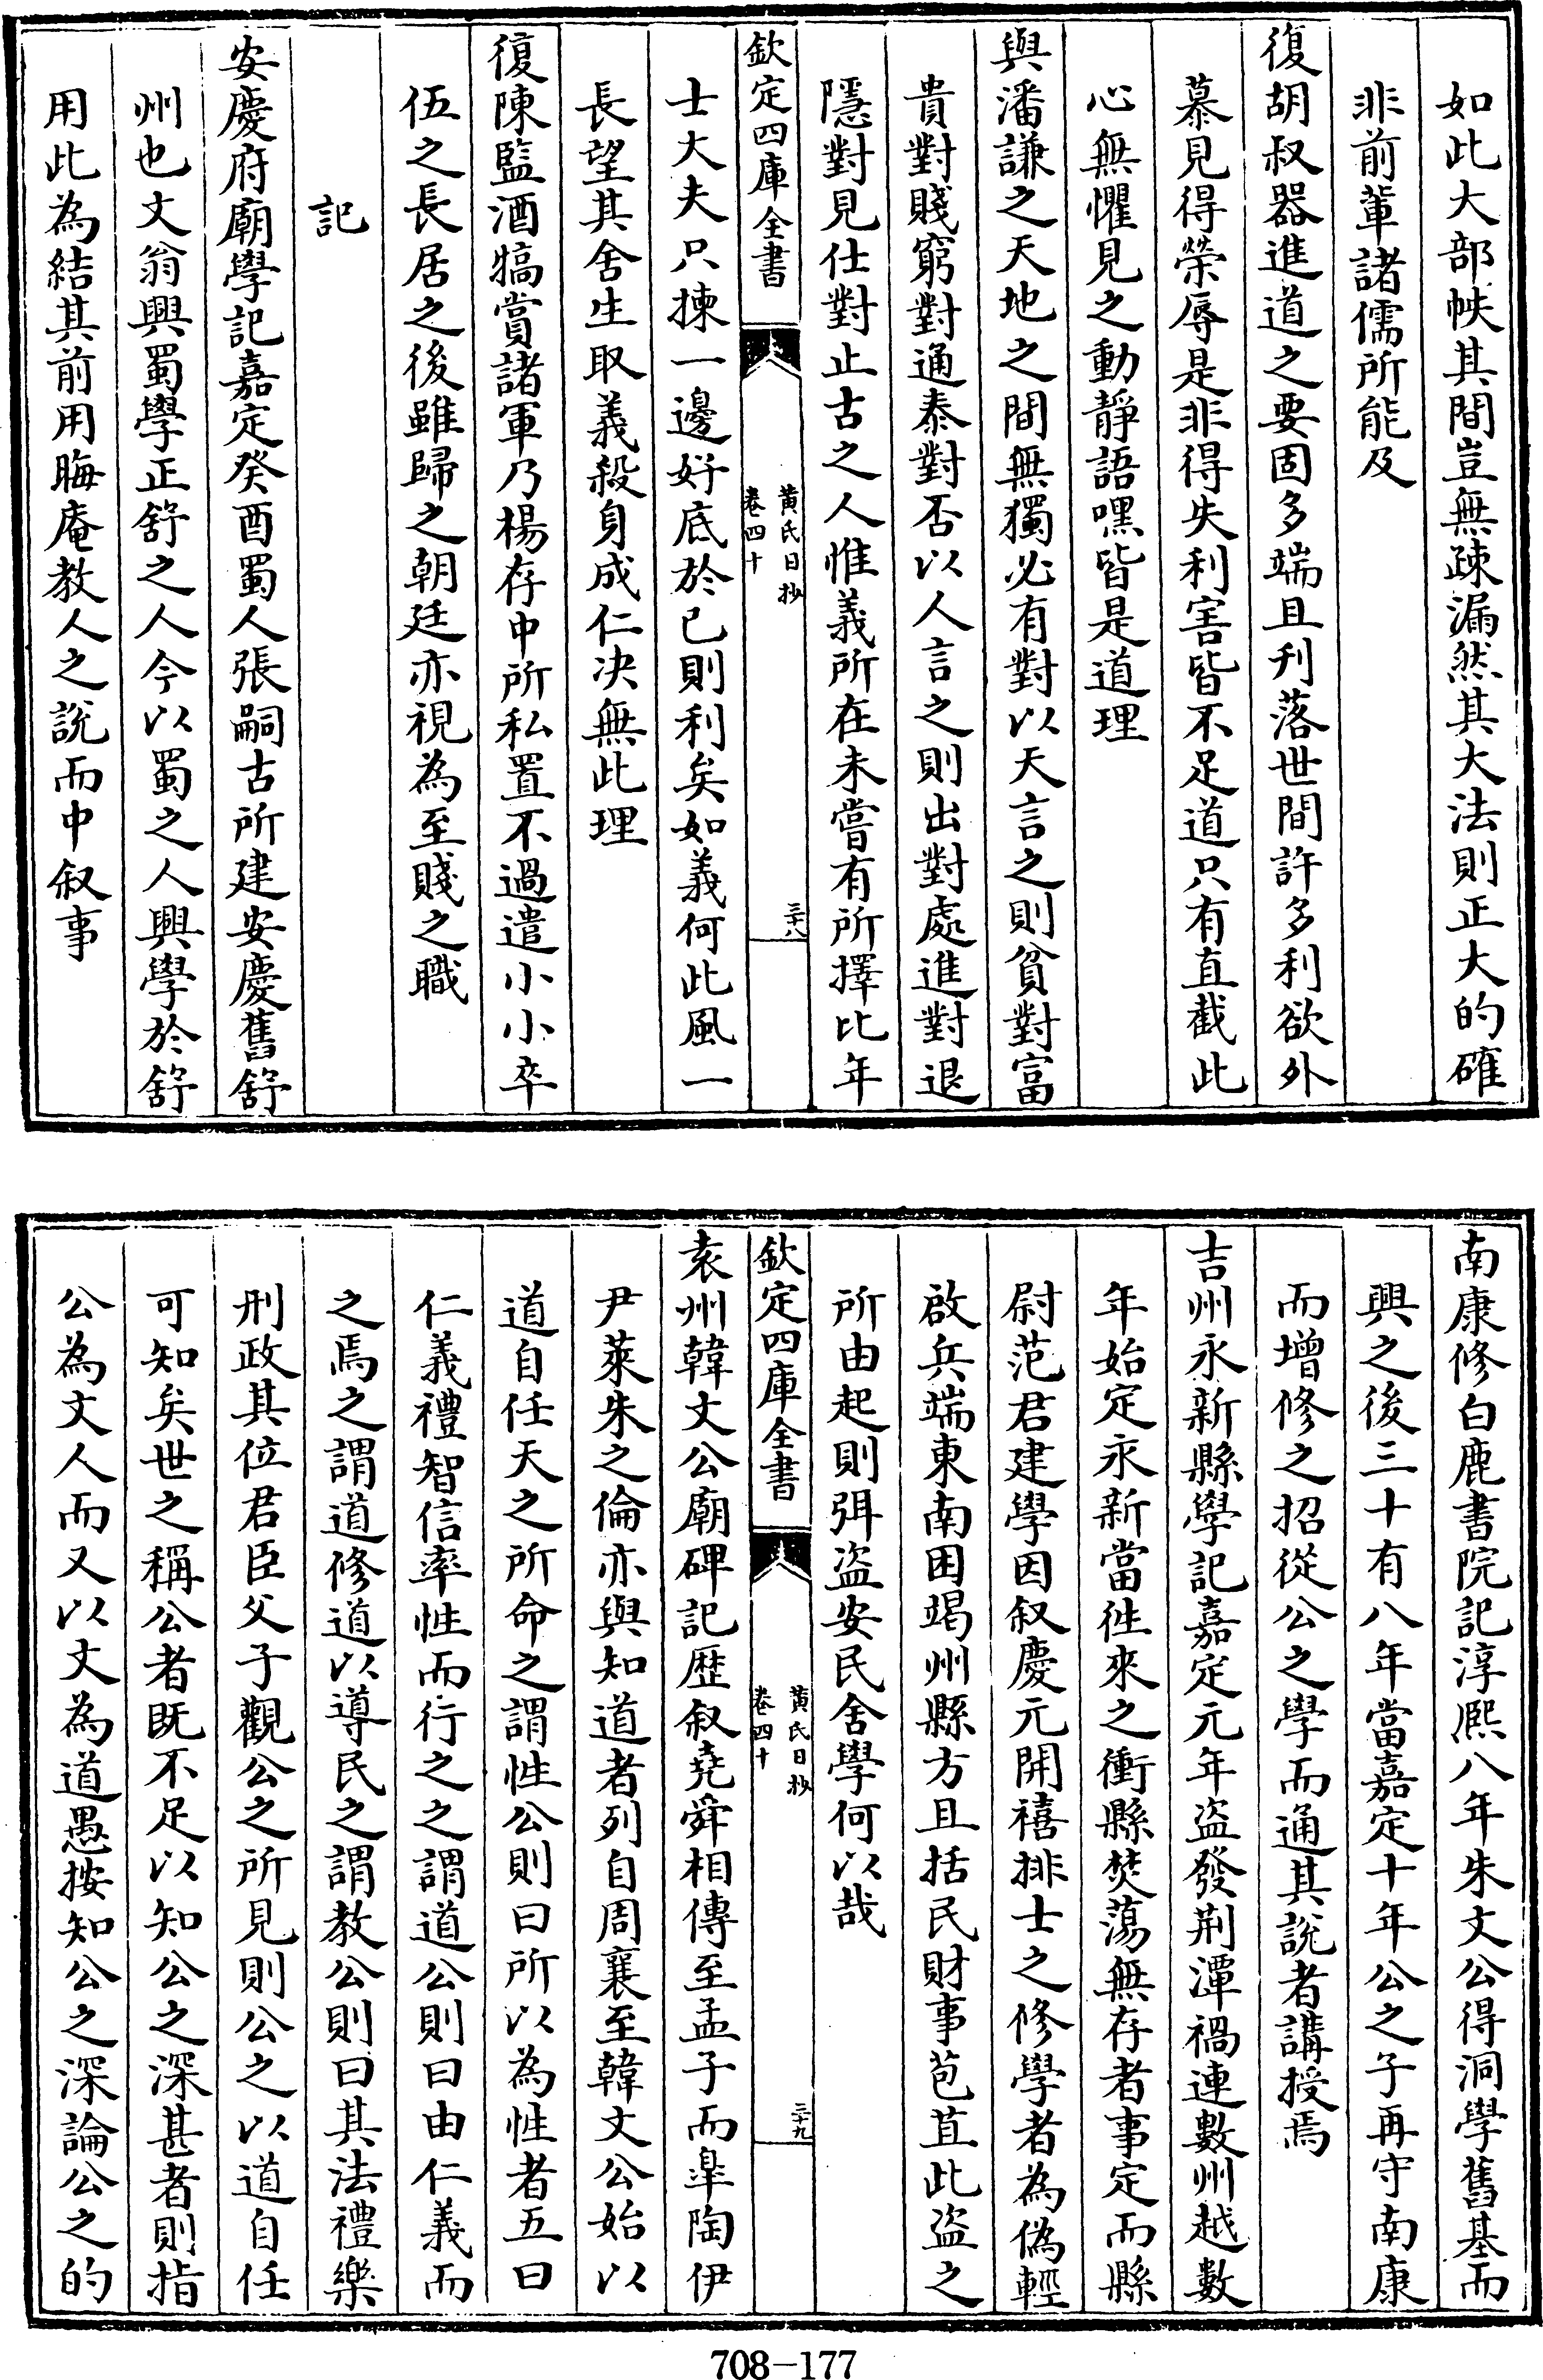 如此大部帙其間豈無疎漏然其大法則正大的確
非前輩諸儒所能及
復胡叔器進道之要固多端且刋落世間許多利欲外
慕見得榮辱是非得失利害皆不足道只有直截此
心無懼見之動靜語嘿皆是道理
與潘謙之天地之間無獨必有對以天言之則貧對富
貴對賤窮對通泰對否以人言之則出對處進對退
隱對見仕對止古之人惟義所在未嘗有所擇比年
欽定四庫全書
黄氏日抄
卷四十
三十八
士大夫只揀一邊好底於已則利矣如義何此風一
長望其舍生取義殺身成仁决無此理
復陳監酒犒賞諸軍乃楊存中所私置不過遣小小卒
伍之長居之後雖歸之朝廷亦視為至賤之職
記
安慶府廟學記嘉定癸酉蜀人張嗣古所建安慶舊舒
州也文翁興蜀學正舒之人今以蜀之人興學於舒
用此為結其前用晦庵教人之說而中叙事
南康修白鹿書院記淳熈八年朱文公得洞學舊基而
興之後三十有八年當嘉定十年公之子再守南康
而增修之招從公之學而通其說者講授焉
吉州永新縣學記嘉定元年盗發荆潭禍連數州越數
年始定永新當徃來之衝縣焚蕩無存者事定而縣
尉范君建學因叙慶元開禧排士之修學者為偽輕
啟兵端東南困竭州縣方且括民財事苞苴此盗之
所由起則弭盗安民舍學何以哉
欽定四庫全書
黄氏日抄
卷四十
三十九
袁州韓文公廟碑記歷叙堯舜相傳至孟子而臯陶伊
尹萊朱之倫亦與知道者列自周襄至韓文公始以
道自任天之所命之謂性公則曰所以為性者五曰
仁義禮智信率性而行之之謂道公則曰由仁義而
之焉之謂道修道以導民之謂教公則曰其法禮樂
刑政其位君臣父子觀公之所見則公之以道自任
可知矣世之稱公者既不足以知公之深甚者則指
公為文人而又以文為道愚按知公之深論公之的
708-177